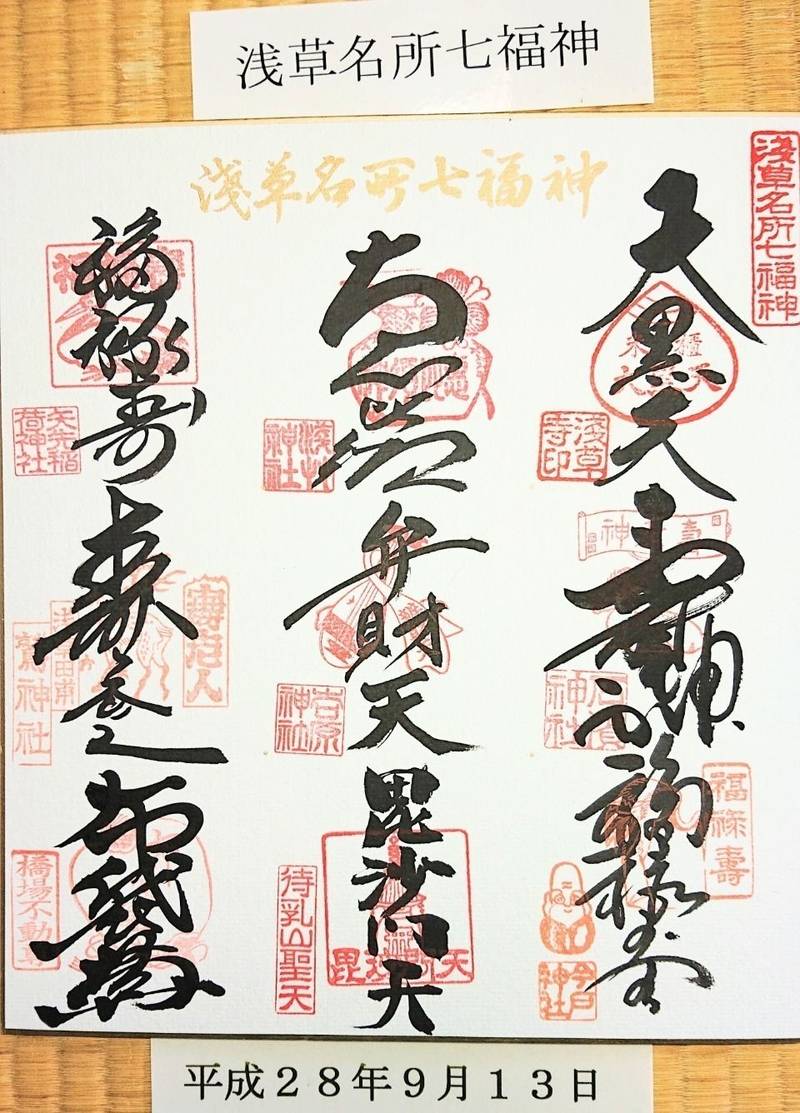 浅草名所七福神
淺草名所七福神
淺草名所七福神
大黒天
淺草寺印
壽老神
福禄寿
福禄壽
今戸神社
淺草神社
弁財天
吉原神社
毘沙門天
待乳山聖天
福禄寿
矢先稲荷神社
壽老人
鷲神社
布袋尊
橋場不動尊
平成28年9月13日